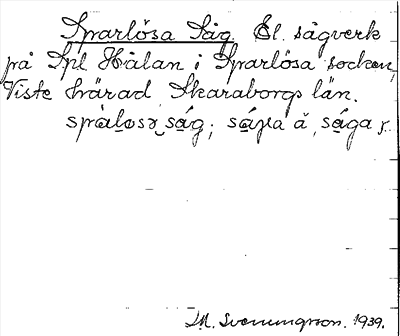 Sparlösa Såg. El. sågverk
på Spl Hålan i Sparlösa socken,
Viste härad Skaraborgs län.
spàlosə såg; såga ä, såga r.
M. Svenungsson. 1939.